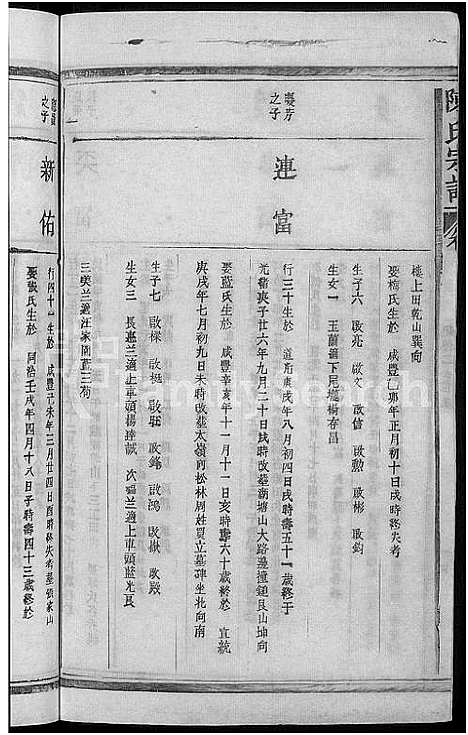 陳氏宗譜
樓上田乾山巽向
娶楊氏生於 咸豐乙卯年正月初十日戌時終失考
生子六 啟亮 啟文 啟信 啟勳 啟彬 啟鈞
生女一 玉蘭適下尾壠楊存昌
之子
連富
行三十生於 道光庚戌年八月初四日戌時壽五十一歲終于
光緒庚子廿六年九月二十日戌時改墓南塘山大路邊撞鐘艮山坤向
娶藍氏生於 咸豐辛亥年十一月十一日亥時壽六十歲終於 宣統
庚戌年七月初九日未時改墓太嶺崗松林周姓買立墓碑坐北向南
生子七 啟樑 啟梃 啟駐 啟銘 啟鴻 啟嶽 啟殿
生女三 長惠兰適上車頭楊達誠 次福兰適上車頭藍光良
三美兰適汪家園藍三狗
之子
新佑
行四十一生於 咸豐己未年三月廿四日酉時終失考墓張家山
娶張氏生於 同治壬戌年四月十八日子時壽四十三歲終於